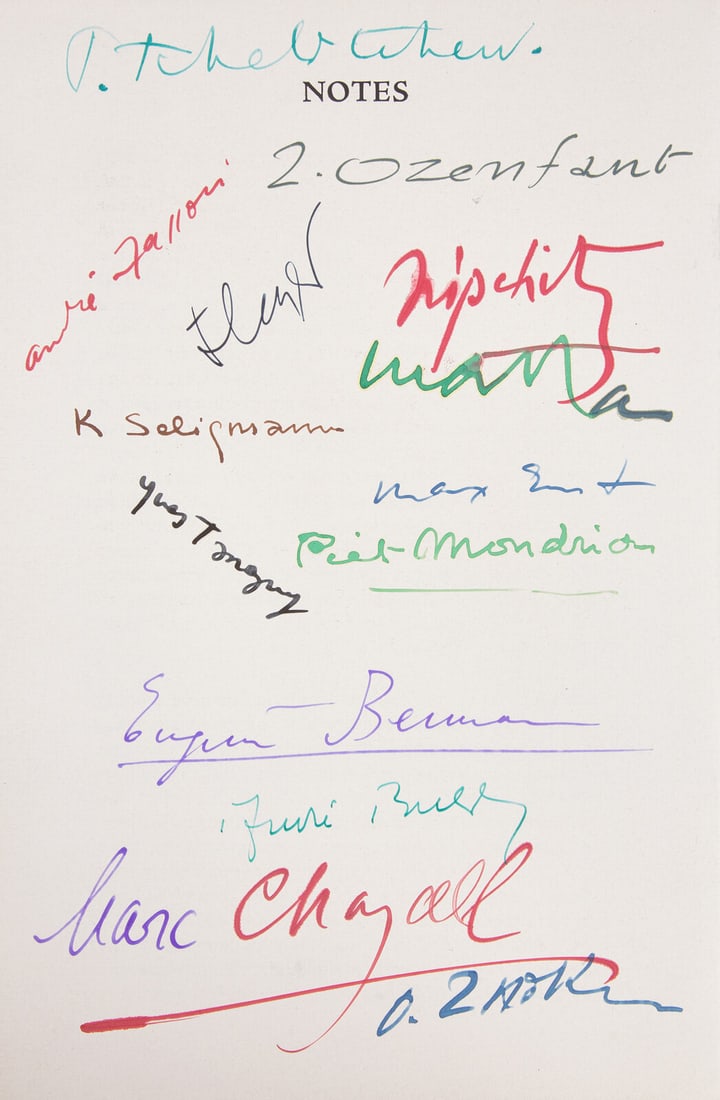 P. Tchelitchew.
NOTES
a. Ozenfant
andré Masson
F Leger
Lipchitz
matta
K Seligmann
max Ernst
Yves Tanguy
Piet Mondrian
Eugene Berman
André Breton
Marc Chagall
O. Zadkine